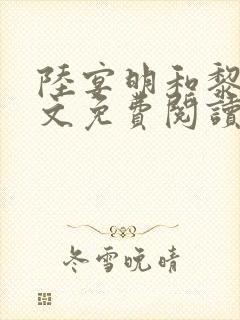 陸宴明和黎
文免費閱讀
冬雪晚晴